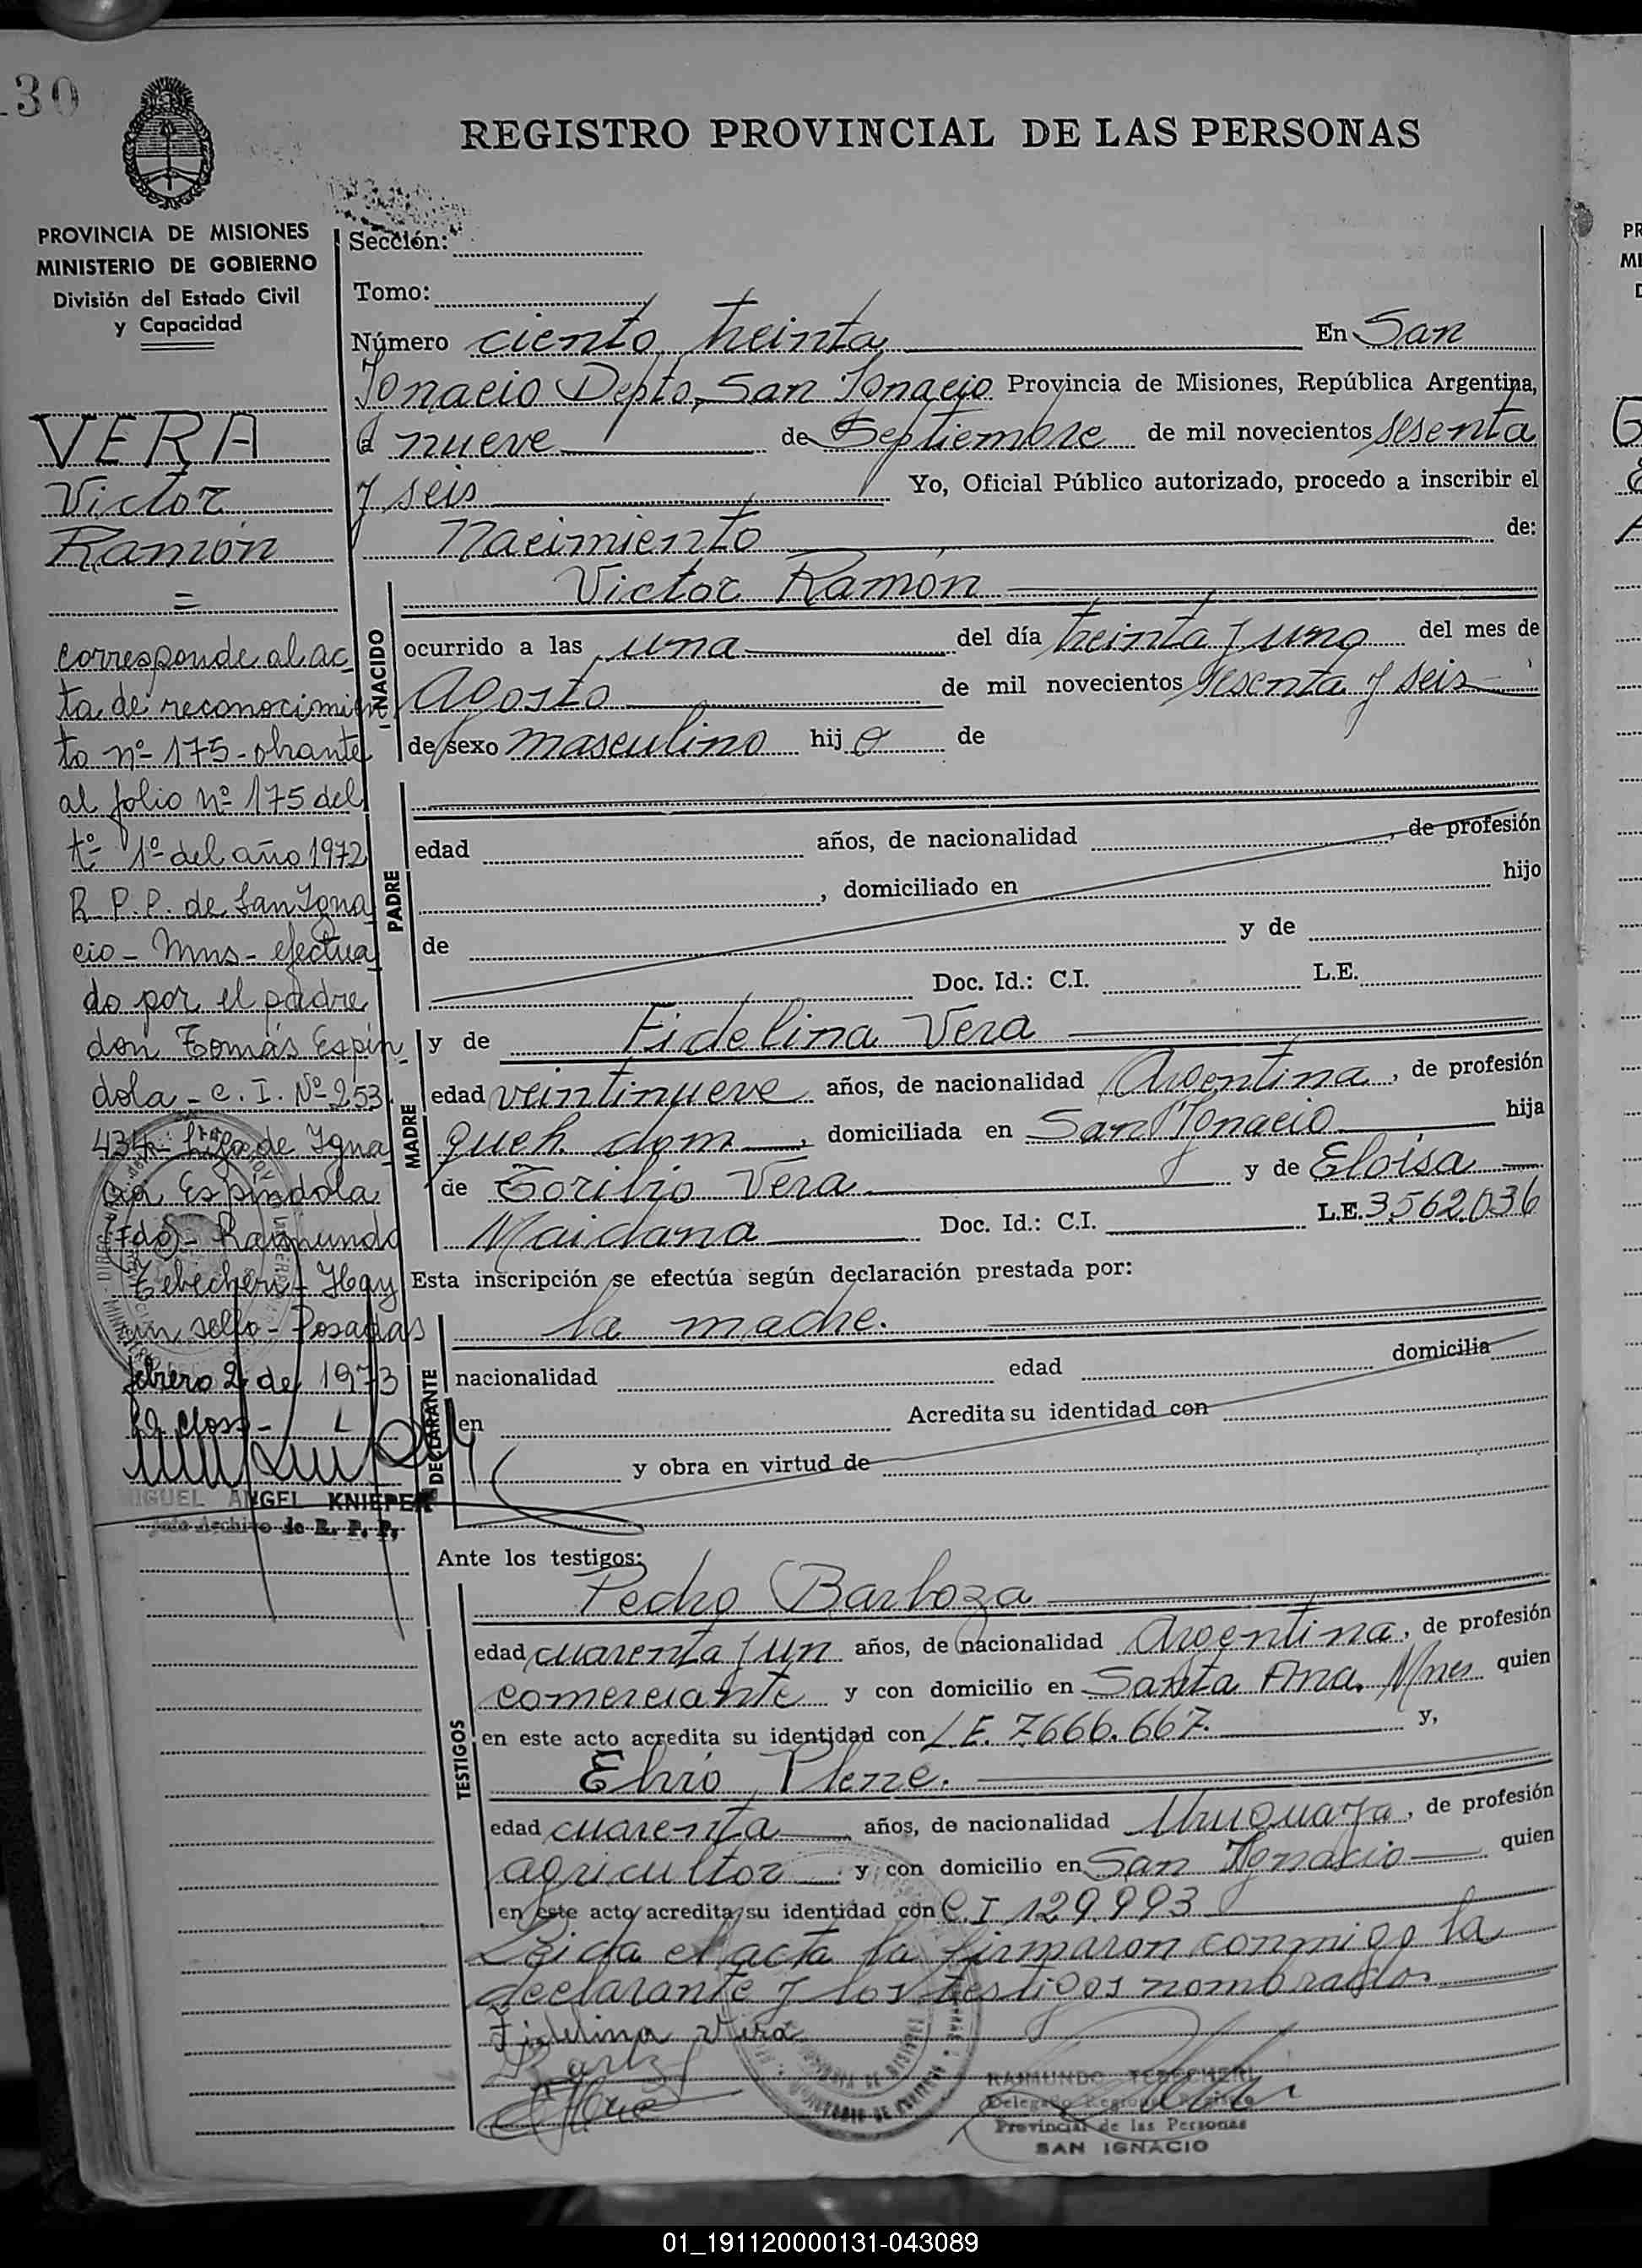 130
REGISTRO PROVINCIAL DE LAS PERSONAS
PROVINCIA DE MISIONES
MINISTERIO DE GOBIERNO
División del Estado Civil
y Capacidad
VERA
Victor
Ramón
=
corresponde al ac
ta de reconocimien
to nº 175 - obrante
al folio nº 175 del
tº 1º del año 1972
R. P. P. de San Igna
cio - Mns - efectua
do por el padre
don Tomás Espín
dola - C. I. Nº 253.
434 - hijo de Igna
cia Espíndola
Fdo - Raimundo
Tebecheri - Hay
un sello - Posadas
febrero 2 de 1973
MIGUEL ANGEL KNIEPER
Jefe Archivo de R. P. P.
Sección:
Tomo:
Número ciento treinta En San
Ignacio Depto, San Ignacio Provincia de Misiones, República Argentina,
a nueve de Septiembre de mil novecientos sesenta
y seis Yo, Oficial Público autorizado, procedo a inscribir el
Nacimiento de:
NACIDO
Victor Ramón
ocurrido a las una del día treinta y uno del mes de
Agosto de mil novecientos sesenta y seis
de sexo masculino hijo de
PADRE
edad años, de nacionalidad , de profesión
, domiciliado en hijo
de y de
Doc. Id.: C.I. L.E.
MADRE
y de Fidelina Vera
edad veintinueve años, de nacionalidad Argentina, de profesión
queh. dom , domiciliada en San Ignacio hija
de Toribio Vera y de Eloisa
Maidana Doc. Id.: C.I. L.E. 3.562.036
Esta inscripción se efectúa según declaración prestada por:
DECLARANTE
la madre.
nacionalidad edad domicilia
en Acredita su identidad con
y obra en virtud de
Ante los testigos:
TESTIGOS
Pedro Barboza
edad cuarenta y un años, de nacionalidad Argentina, de profesión
comerciante y con domicilio en Santa Ana, Mnes quien
en este acto acredita su identidad con L.E. 7.666.667. y,
edad cuarenta años, de nacionalidad Uruguaya, de profesión
agricultor y con domicilio en San Ignacio quien
en este acto acredita su identidad con C.I 129.993
Leida el acta la firmaron conmigo la
declarante y los testigos nombrados
Fidelina Vera
RAIMUNDO TEBECHERI
Delegado Regional Registro
Provincial de las Personas
SAN IGNACIO
01_191120000131-043089